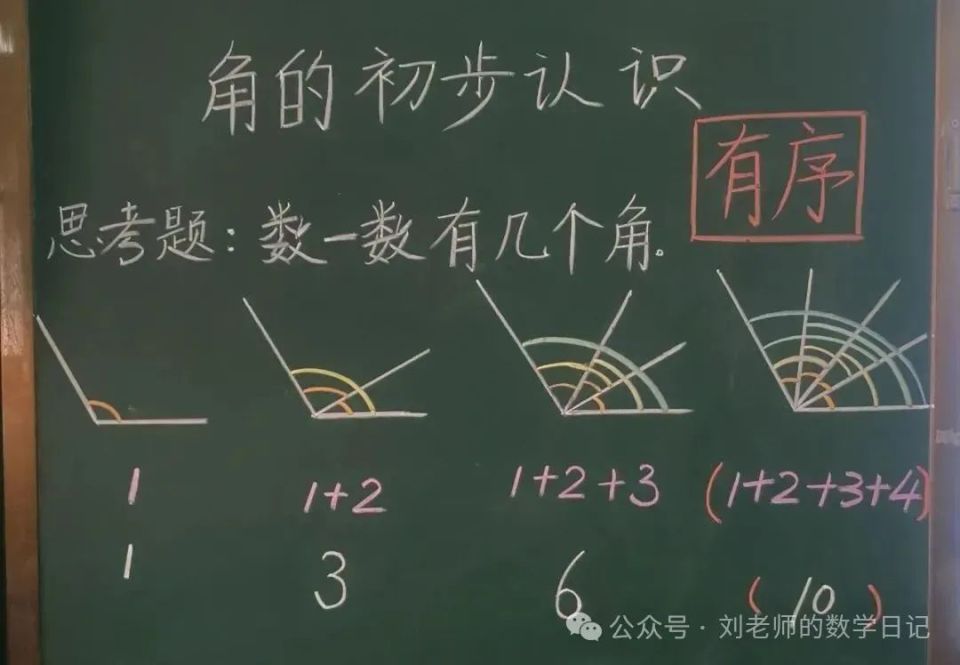 角的初步认识
有序
思考题：数一数有几个角.
1
1+2
1+2+3
(1+2+3+4)
1
3
6
(10)
公众号·刘老师的数学日记